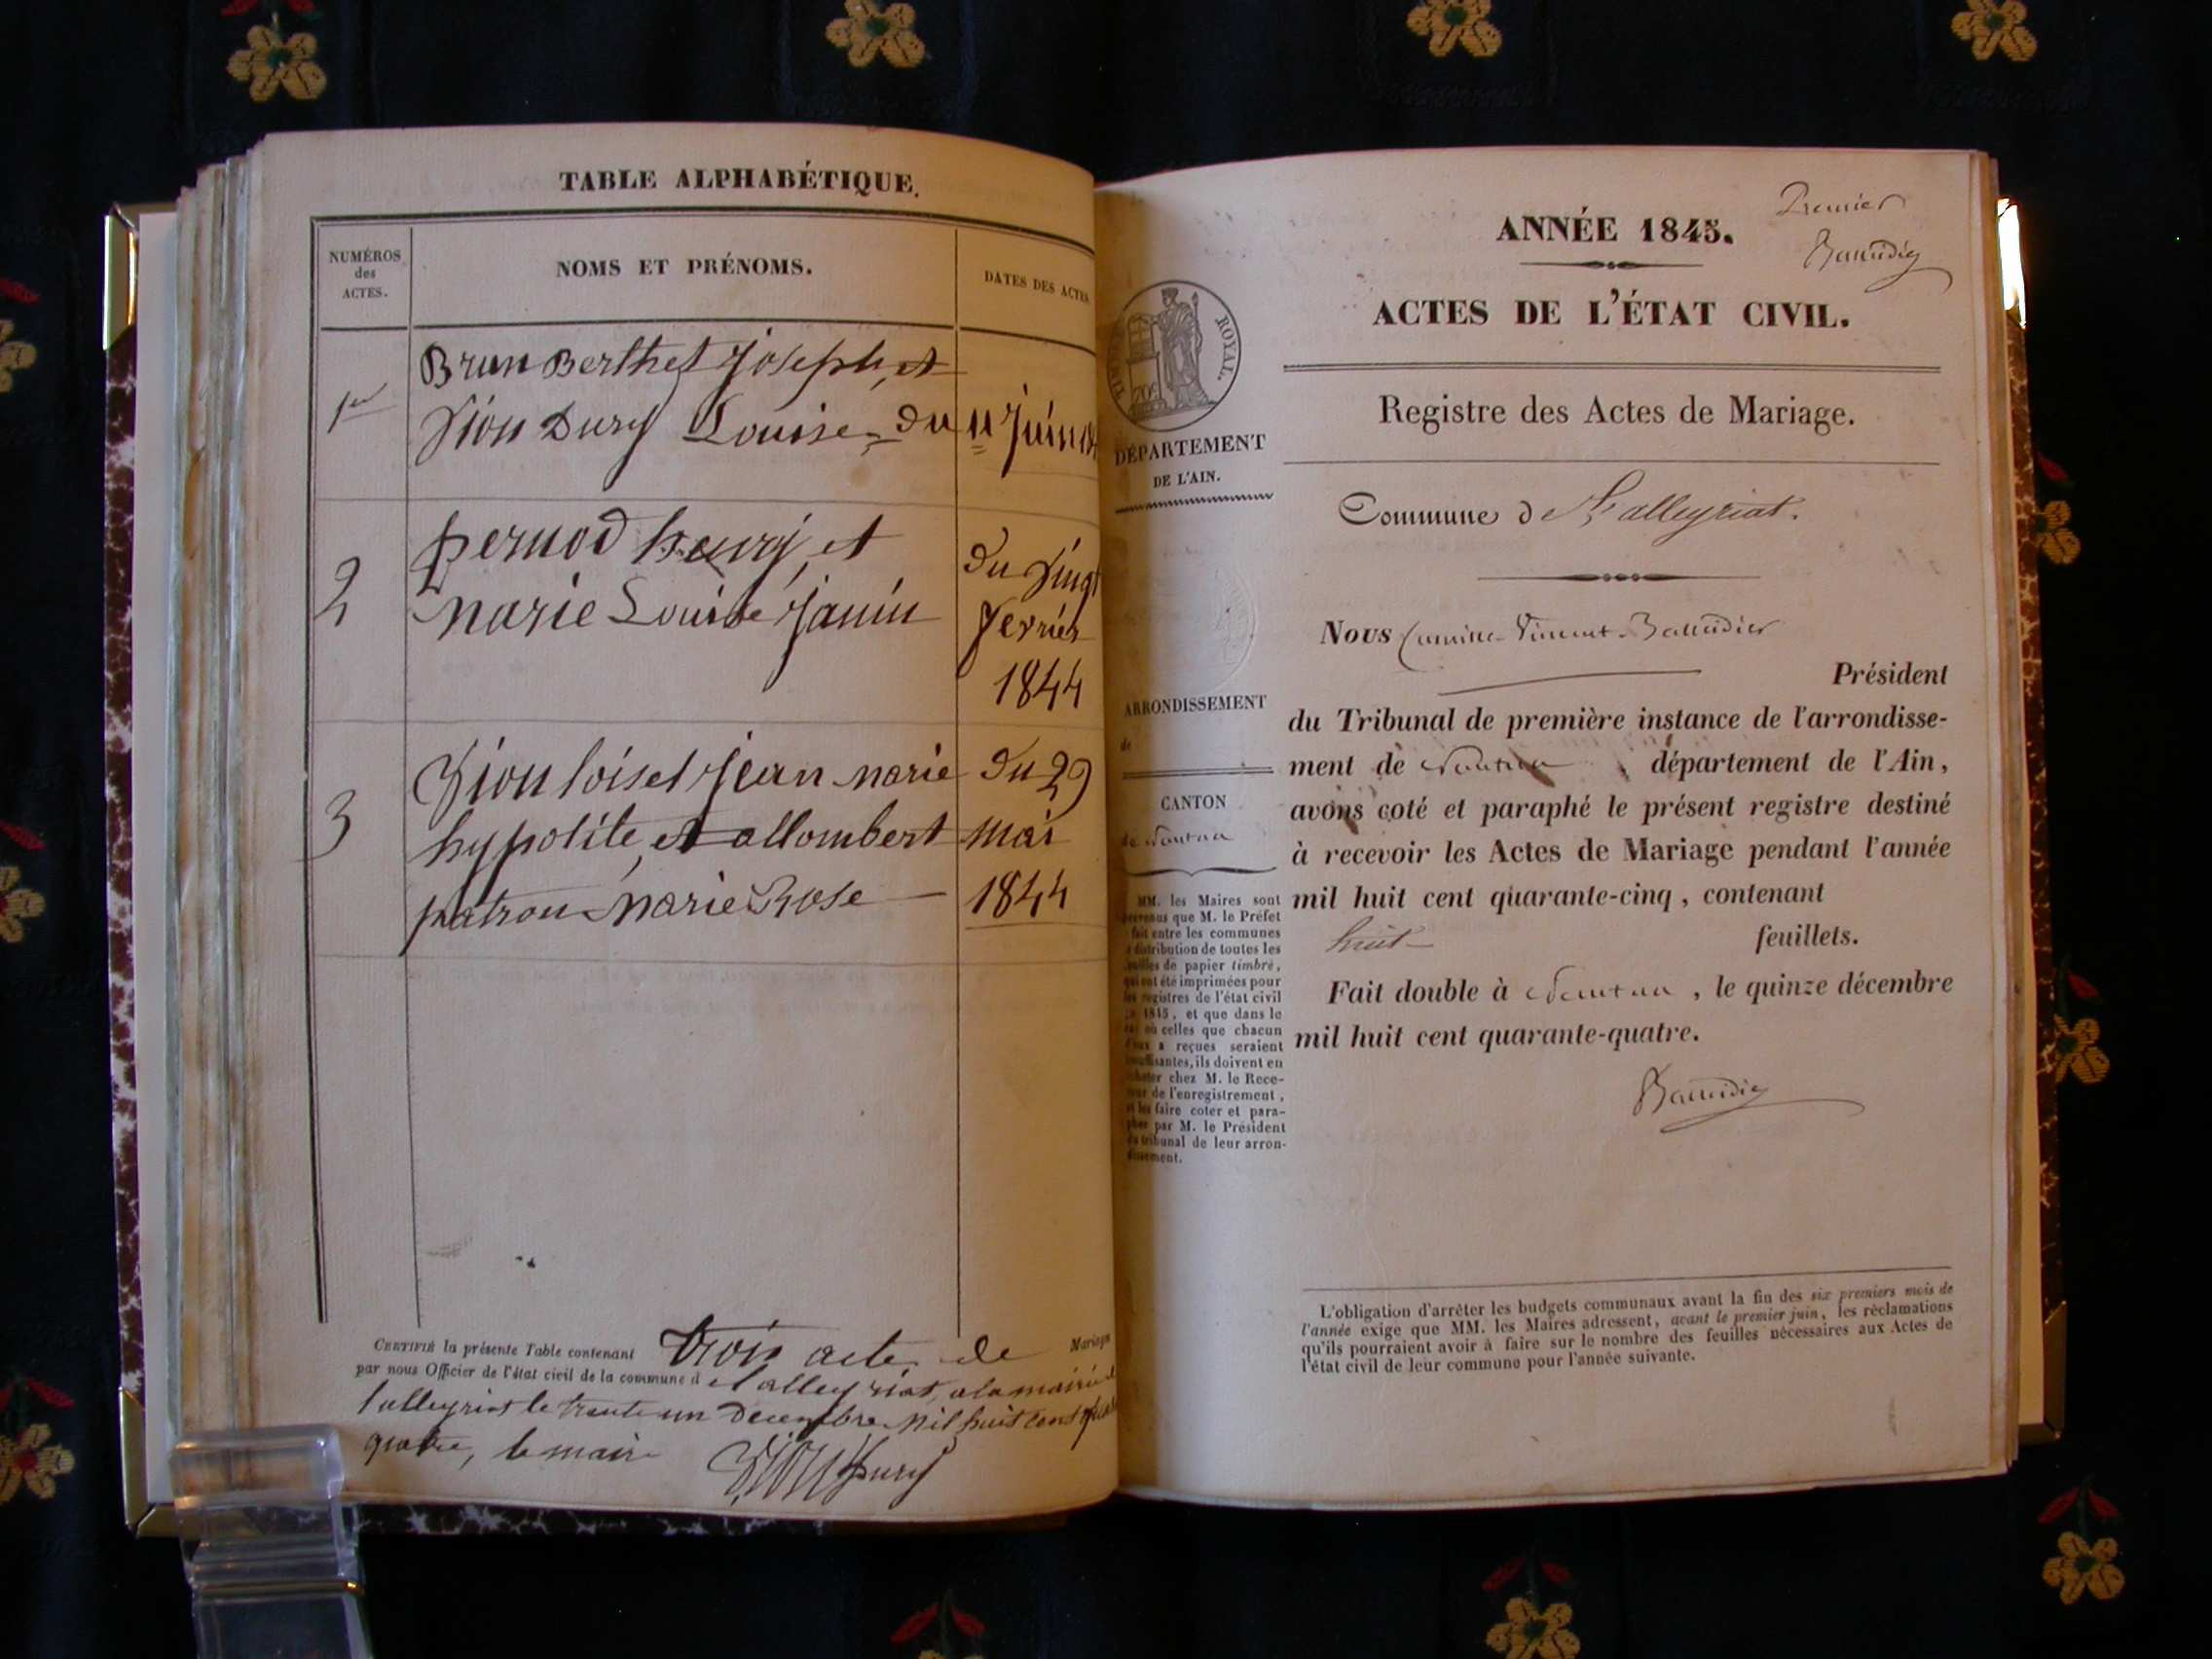 TABLE ALPHABÉTIQUE.
NUMÉROS
des
ACTES.
NOMS ET PRÉNOMS.
DATES DES ACTES
1er
Brun Berthet Joseph, et
Vion Dury Louise du 11 Juin
2
pernod henry, et
Marie Louise Janin
du Vingt
fevrier
1844
3
Vion loiset Jean Marie
hypolite, et allombert
patron Marie Rose
du 29
Mai
1844
CERTIFIÉ la présente Table contenant trois acte de Mariage
par nous Officier de l'état civil de la commune d etalleyriat, a la mairie
talleyriat le trente un Decembre Mil huit cent
quatre, le maire
Vion Dury
Premier
ANNÉE 1845.
ACTES DE L'ÉTAT CIVIL.
TIMBRE ROYAL.
70c
Registre des Actes de Mariage.
DÉPARTEMENT
DE L'AIN.
Commune de Talleyriat.
Nous Camille Vincent
Président
ARRONDISSEMENT
de
du Tribunal de première instance de l'arrondisse-
ment de Nantua département de l'Ain,
avons coté et paraphé le présent registre destiné
à recevoir les Actes de Mariage pendant l'année
mil huit cent quarante-cinq, contenant
huit feuillets.
Fait double à Nantua, le quinze décembre
mil huit cent quarante-quatre.
CANTON
de Nantua
MM. les Maires sont
prévenus que M. le Préfet
fait entre les communes
la distribution de toutes les
feuilles de papier timbré,
qui ont été imprimées pour
les registres de l'état civil
en 1845, et que dans le
cas où celles que chacun
d'eux a reçues seraient
insuffisantes, ils doivent en
acheter chez M. le Rece-
veur de l'enregistrement,
et les faire coter et para-
pher par M. le Président
du tribunal de leur arron-
dissement.
L'obligation d'arrêter les budgets communaux avant la fin des six premiers mois de
l'année exige que MM. les Maires adressent, avant le premier juin, les réclamations
qu'ils pourraient avoir à faire sur le nombre des feuilles nécessaires aux Actes de
l'état civil de leur commune pour l'année suivante.